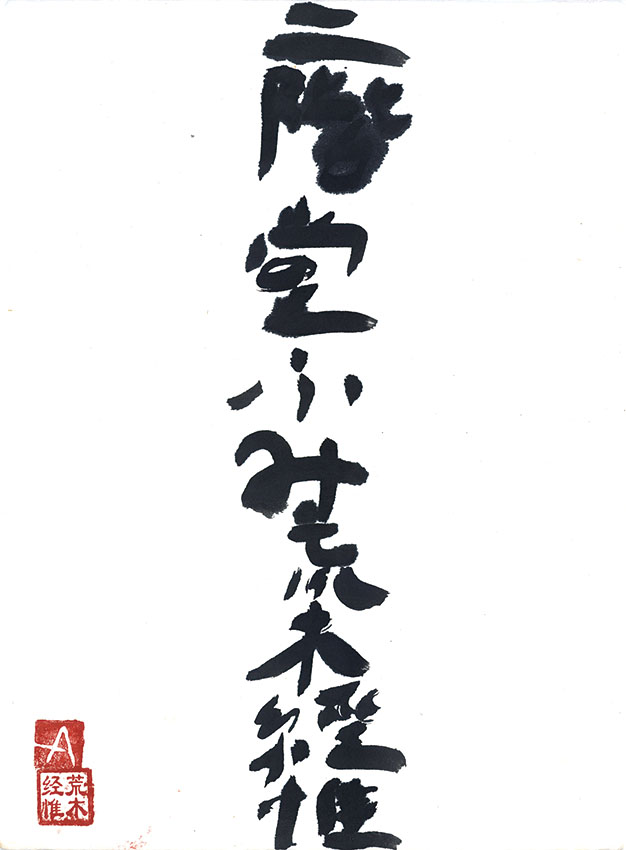 二階堂ふみ荒木経惟
A
荒木
经惟